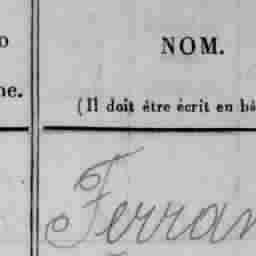 NOM.
ne.
(Il doit être écrit en bâ
Ferran